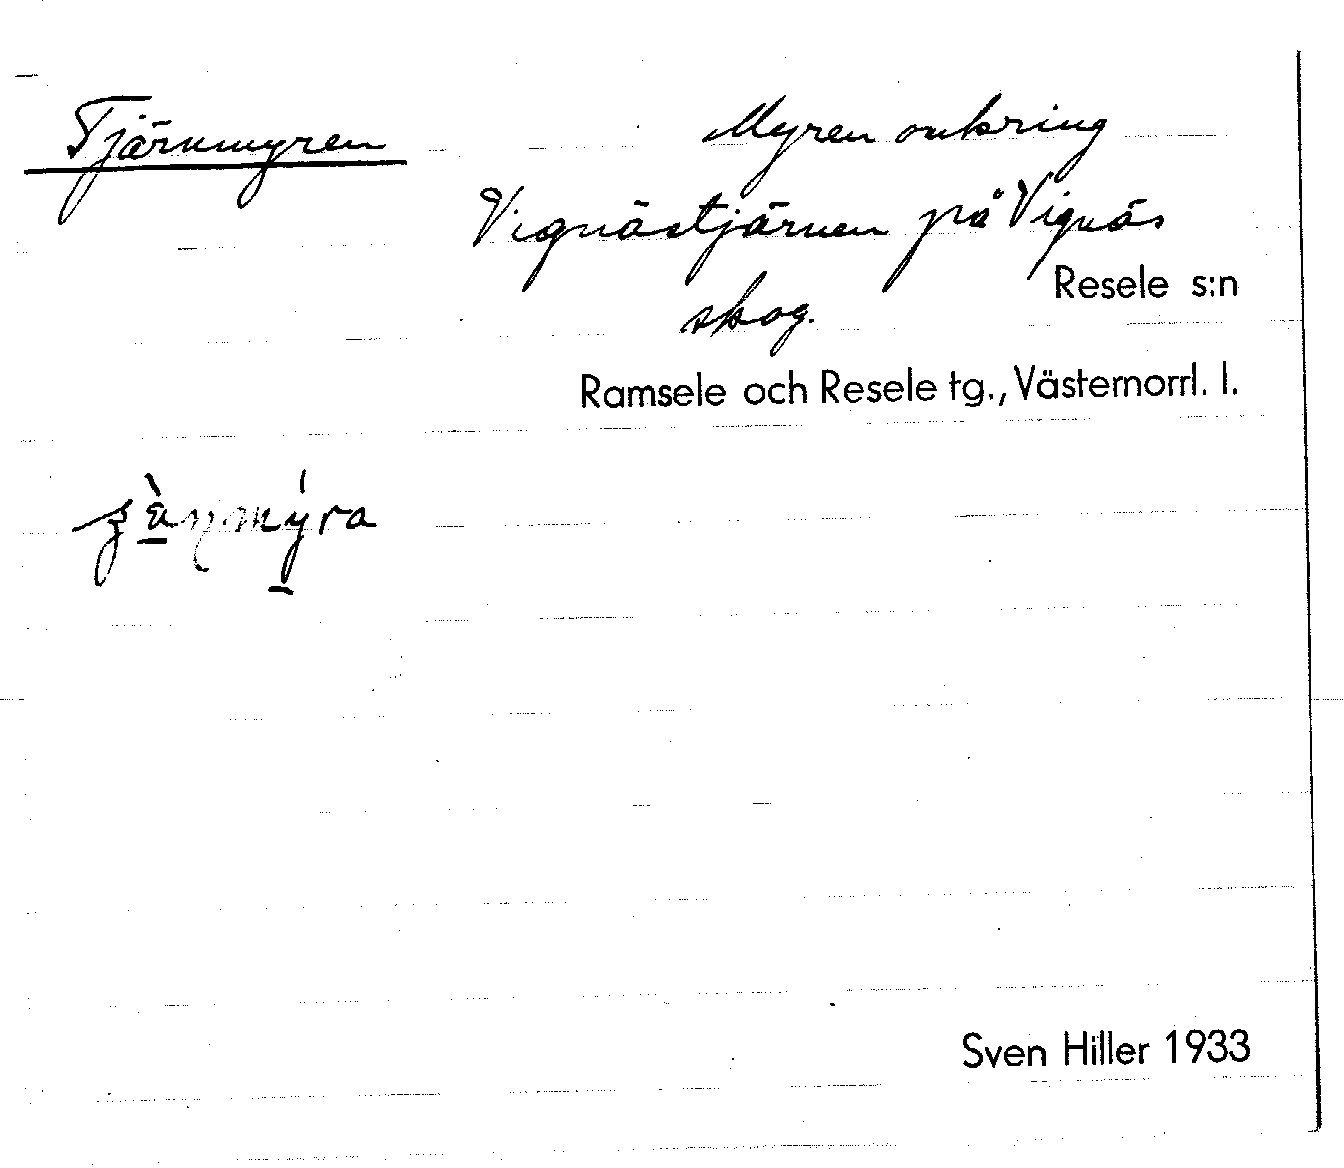 Tjärnmyren
Myren omkring
Vignästjärnen på Vignäs
skog.
Resele s:n
Ramsele och Resele tg., Västernorrl. l.
Sven Hiller 1933